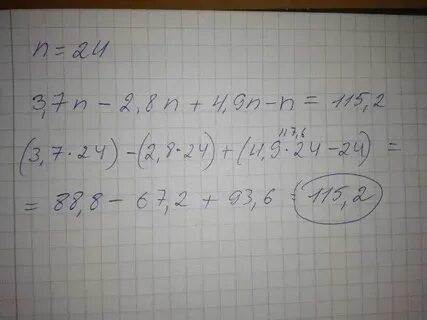 n = 24
3,7n - 2,8n + 4,9n - n = 115,2
117,6
(3,7·24) - (2,8·24) + (4,9·24 - 24) =
= 88,8 - 67,2 + 93,6 = 115,2